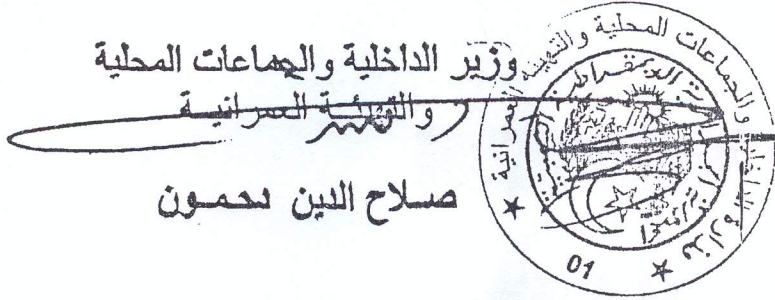 وزير الداخلية والجماعات المحلية
والتهيئة العمرانية
صلاح الدين دحمون
وزارة الداخلية والجماعات المحلية والتهيئة العمرانية
01